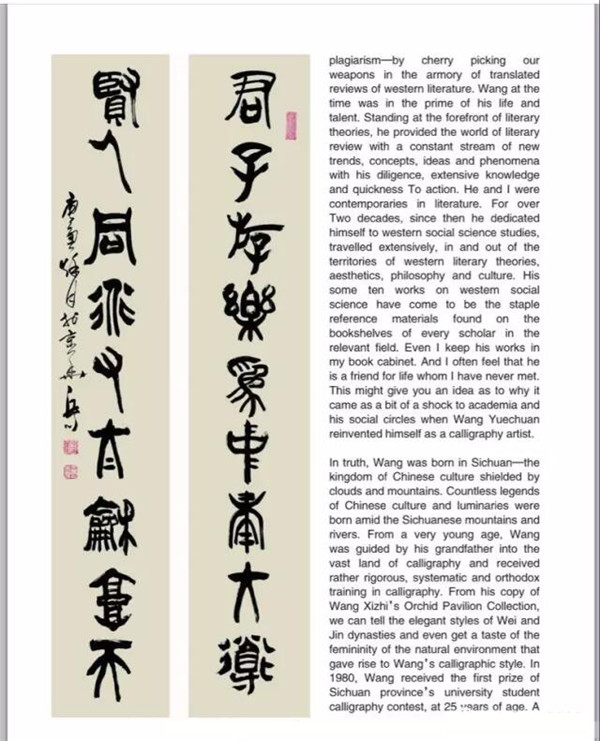 君子樂為中奉大
賢人同龢天
plagiarism—by cherry picking our
weapons in the armory of translated
reviews of western literature. Wang at the
time was in the prime of his life and
talent. Standing at the forefront of literary
theories, he provided the world of literary
review with a constant stream of new
trends, concepts, ideas and phenomena
with his diligence, extensive knowledge
and quickness To action. He and I were
contemporaries in literature. For over
Two decades, since then he dedicated
himself to western social science studies,
travelled extensively, in and out of the
territories of western literary theories,
aesthetics, philosophy and culture. His
some ten works on western social
science have come to be the staple
reference materials found on the
bookshelves of every scholar in the
relevant field. Even I keep his works in
my book cabinet. And I often feel that he
is a friend for life whom I have never met.
This might give you an idea as to why it
came as a bit of a shock to academia and
his social circles when Wang Yuechuan
reinvented himself as a calligraphy artist.
In truth, Wang was born in Sichuan—the
kingdom of Chinese culture shielded by
clouds and mountains. Countless legends
of Chinese culture and luminaries were
born amid the Sichuanese mountains and
rivers. From a very young age, Wang
was guided by his grandfather into the
vast land of calligraphy and received
rather rigorous, systematic and orthodox
training in calligraphy. From his copy of
Wang Xizhi's Orchid Pavilion Collection,
we can tell the elegant styles of Wei and
Jin dynasties and even get a taste of the
femininity of the natural environment that
gave rise to Wang's calligraphic style. In
1980, Wang received the first prize of
Sichuan province's university student
calligraphy contest, at 25 years of age. A